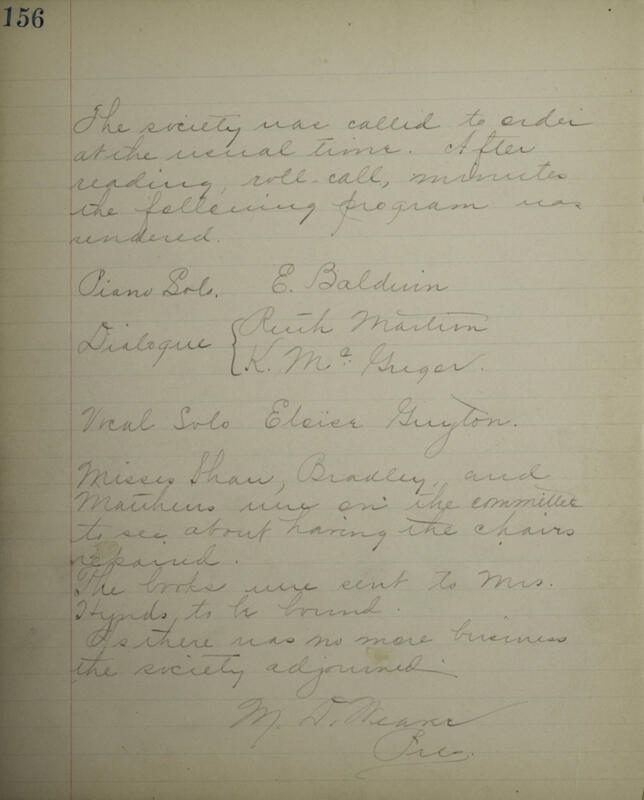 156
The society was called to order
at the usual time. After
reading, roll-call, minutes
the following program was
rendered.
Piano Solo. E. Baldwin
Dialogue { Ruth Martin
K. Mc Gregor.
Vocal Solo Eloise Guyton.
Misses Shaw, Bradley, and
Matthews were on the committee
to see about having the chairs
repaired.
The books were sent to Mrs.
Hynds, to be bound.
As there was no more business
the society adjourned.
M. D. Weaver
Pres.